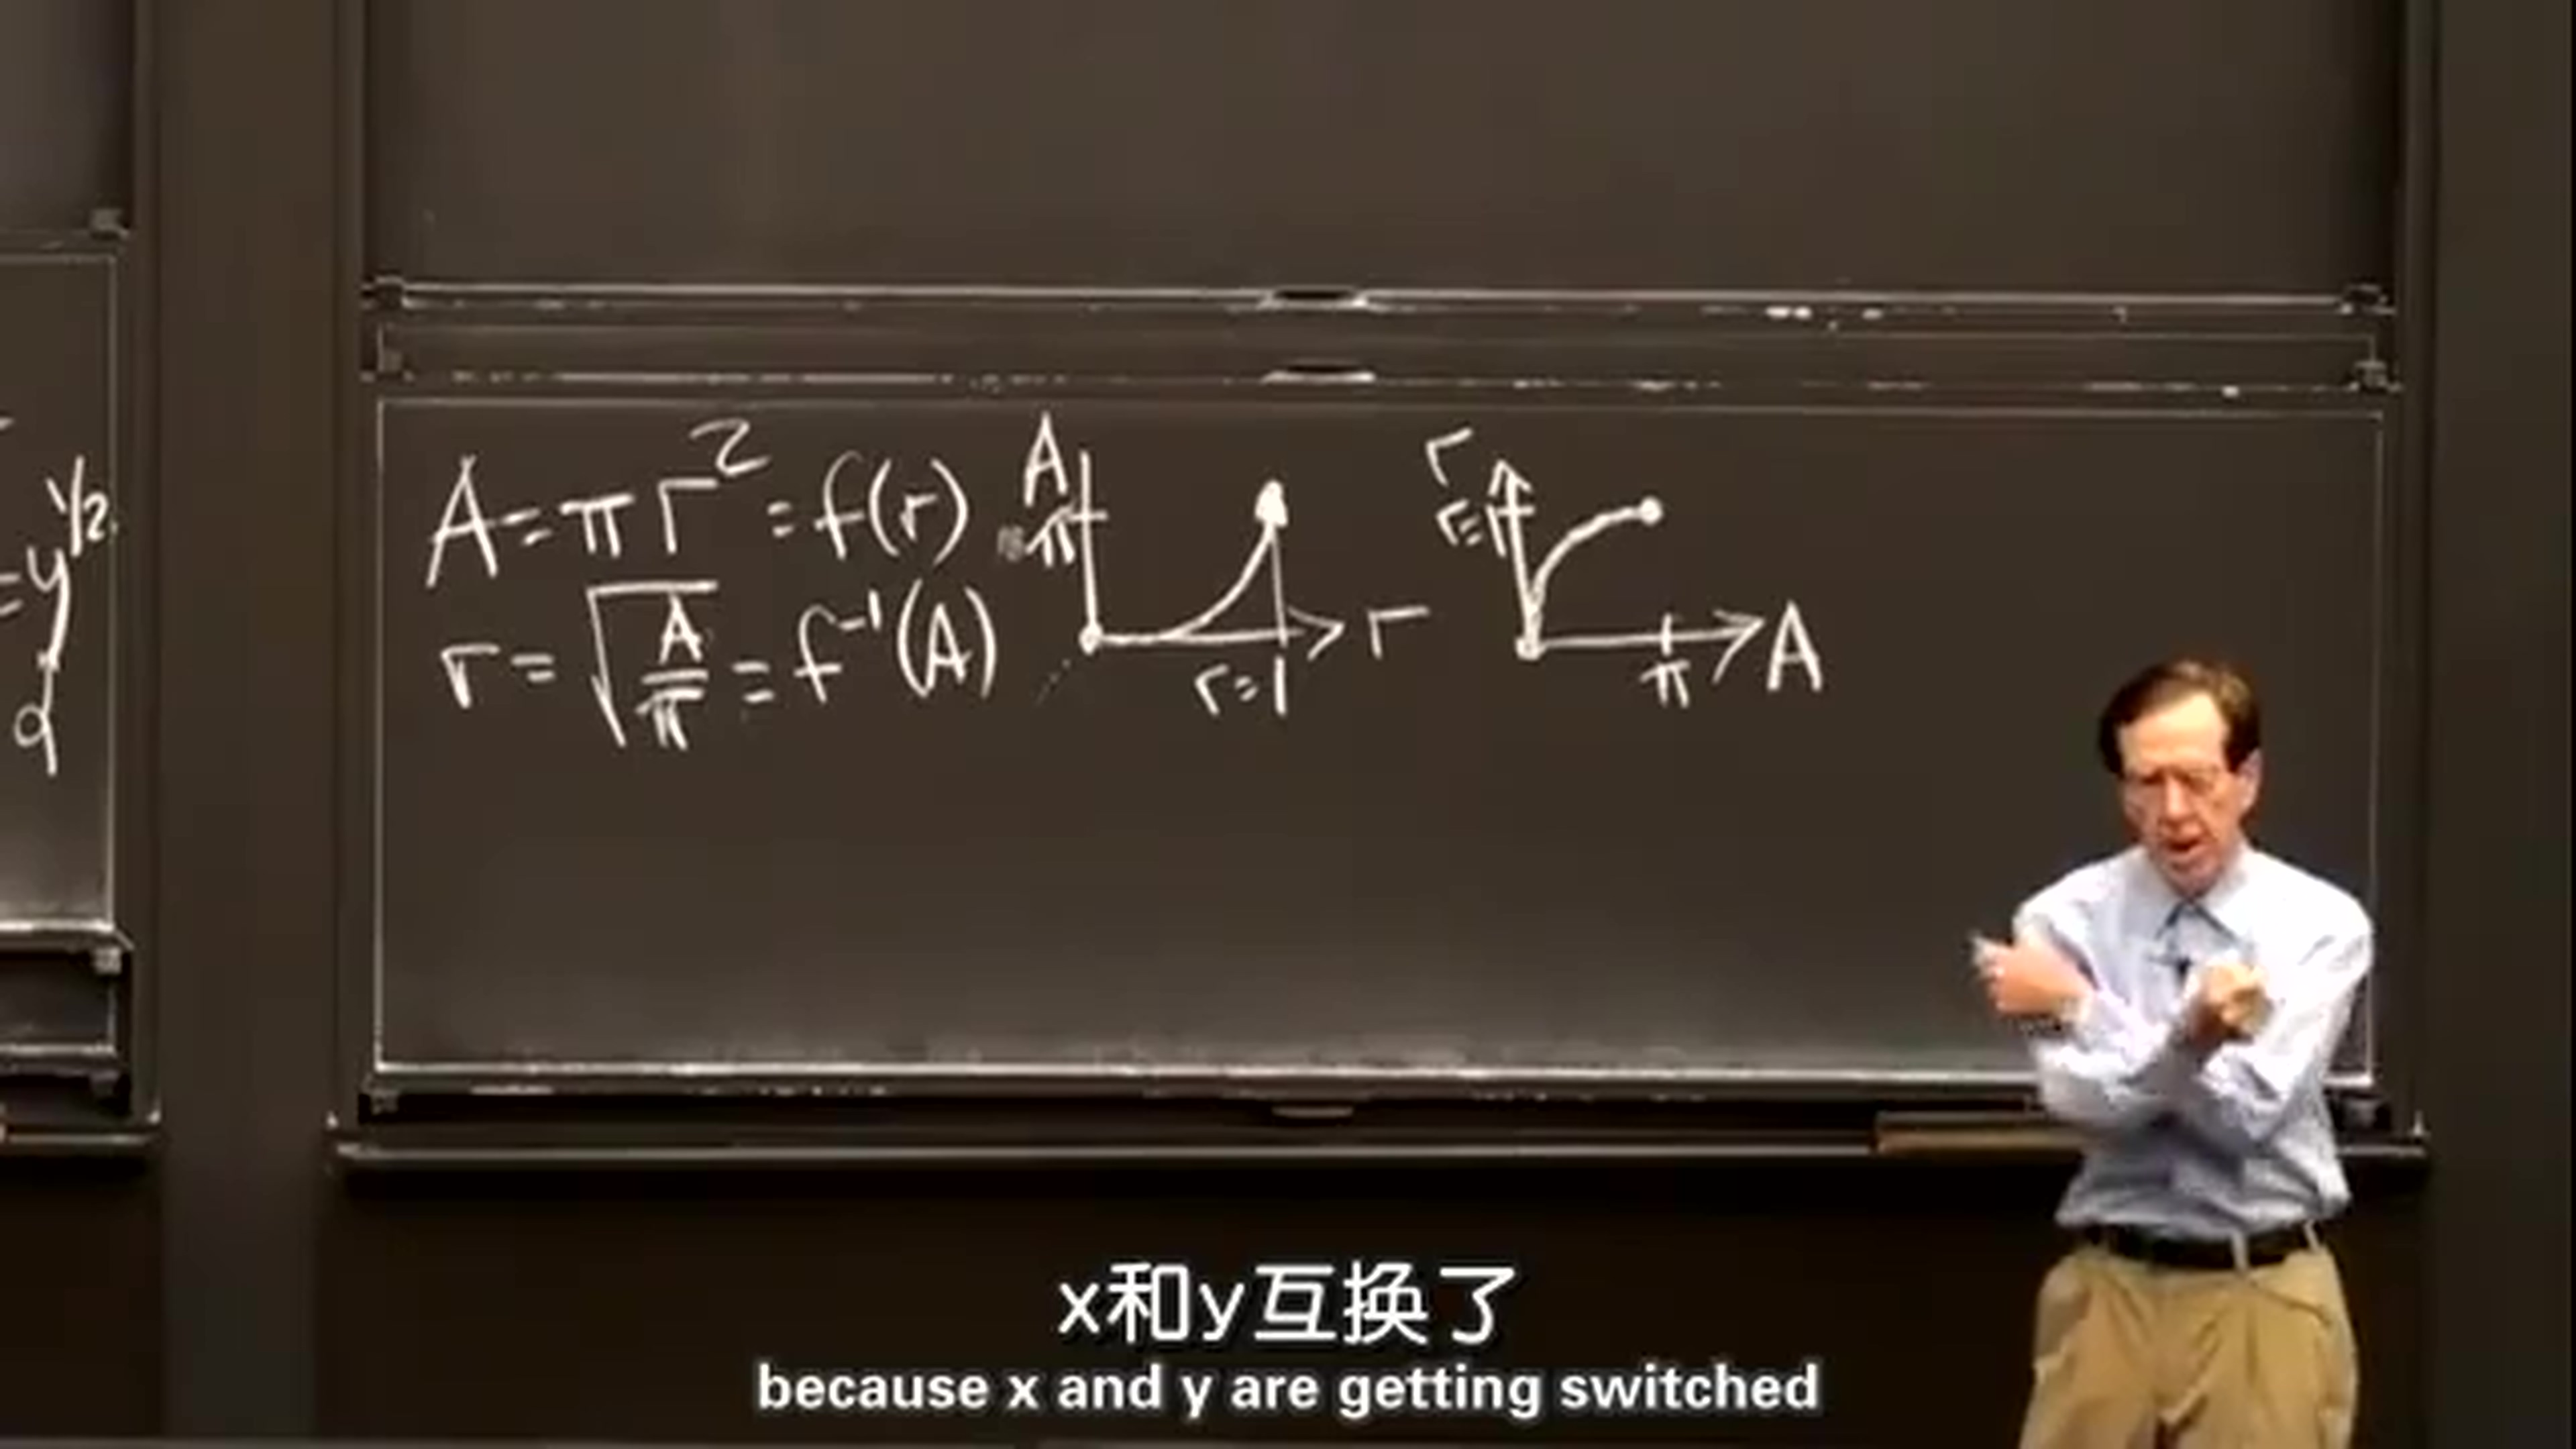 =y^1/2
A=πr²=f(r)
r=√(A/π)=f⁻¹(A)
A
π
r=1
r
r
r=1
π
A
x和y互换了
because x and y are getting switched